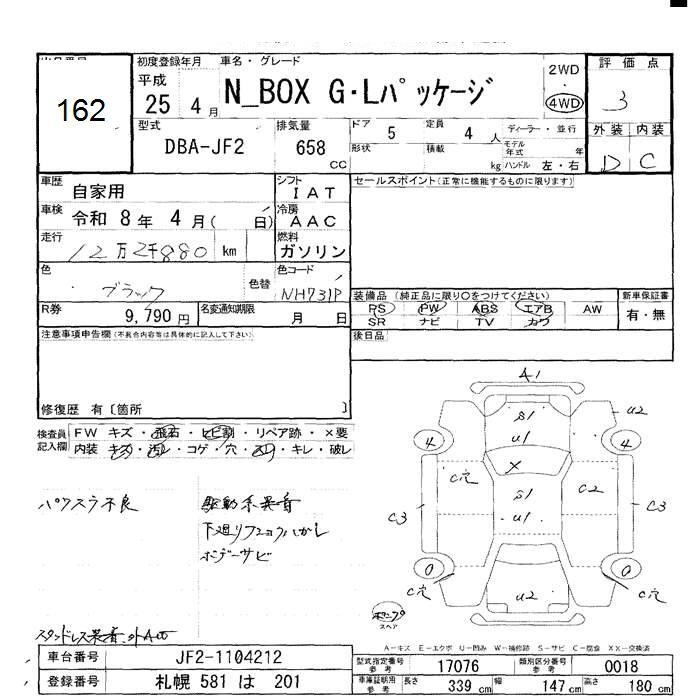 162
初度登録年月
平成
25 4月
車名・グレード
N_BOX G・Lパッケージ
2WD
・
4WD
評価点
3
外装 内装
D C
型式
DBA-JF2
排気量
658 CC
ドア 5
定員 4 人
形状
積載 kg
ディーラー・並行
モデル年式 年
ハンドル 左・右
車歴 自家用
シフト IAT
車検 令和 8年 4月( 日)
冷房 AAC
走行 12万2千880 km
燃料 ガソリン
色 ブラック
色替
色コード NH731P
R券 9,790 円
名変通知期限 月 日
セールスポイント(正常に機能するものに限ります)
装備品(純正品に限り○をつけてください)
PS PW ABS エアB AW
SR ナビ TV カワ
新車保証書
有・無
後日品
注意事項申告欄(不具合内容等は具体的に記入して下さい)
修復歴 有〔箇所 〕
検査員記入欄
FW キズ・飛石・ヒビ割・リペア跡・×要
内装 キズ・汚れ・コゲ・穴・スレ・キレ・破レ
パワスラ不良
駆動系異音
下廻りフショクハガレ
ボデーサビ
A1
S1
U1
U2
4
4
X
C穴
S1
U1
C2
C3
C3
0
0
C穴
C穴
U2
スペア
A-キズ E-エクボ U-凹み W-補修跡 S-サビ C-腐食 XX-交換済
車台番号 JF2-1104212
登録番号 札幌 581 は 201
型式指定番号 参考 17076
類別区分番号 参考 0018
車庫証明用 参考 長さ 339 cm 幅 147 cm 高さ 180 cm